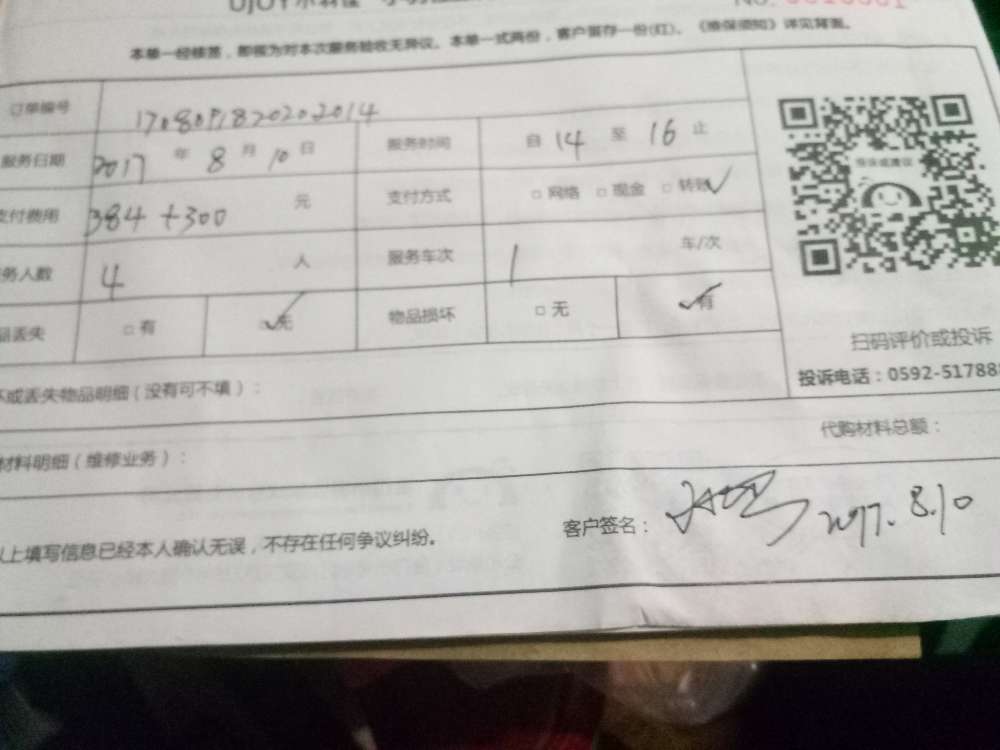 本单一经核签，即视为对本次服务验收无异议。本单一式两份，客户留存一份(红)。《维保须知》详见背面。
订单编号 1708091820202014
服务日期 2017 年 8 月 10 日 服务时间 自 14 至 16 止
支付费用 384+300 元 支付方式 □ 网络 □ 现金 □ 转账 ✓
务人数 4 人 服务车次 1 车/次
品丢失 □ 有 ✓无 物品损坏 □ 无 ✓有
扫码评价或投诉
投诉电话：0592-51788
坏或丢失物品明细（没有可不填）：
代购材料总额：
材料明细（维修业务）：
以上填写信息已经本人确认无误，不存在任何争议纠纷。
客户签名： 2017.8.10